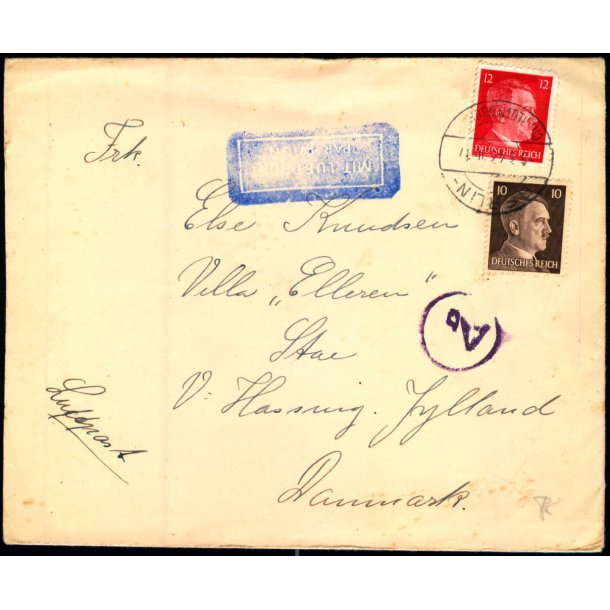 12 12
DEUTSCHES REICH
MIT LUF
PAR AVION
Frk.
10 10
DEUTSCHES REICH
Else Knudsen
Villa „Elleren"
Stae
V. Hassing. Jylland
Danmark.
Luftpost